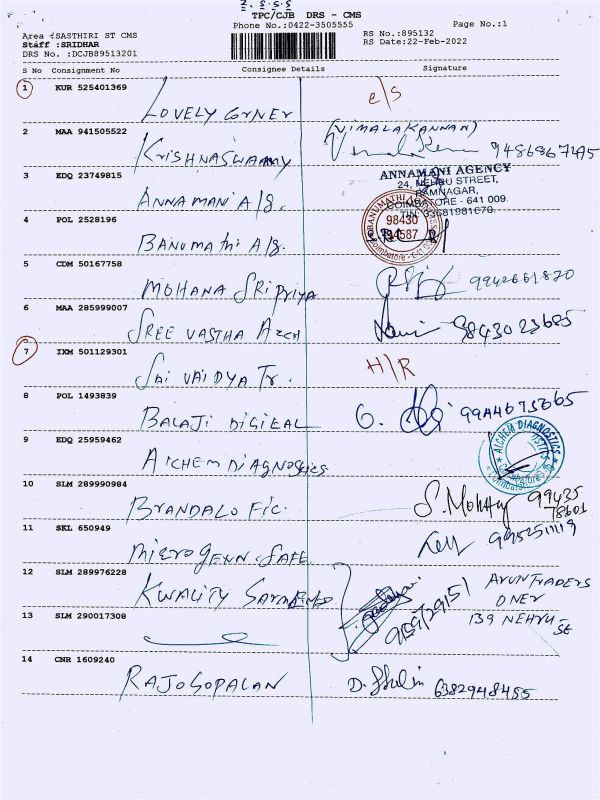 TPC/CJB DRS - CMS
Phone No.:0422-3505555
Page No.:1
Area :SASTHIRI ST CMS
Staff :SRIDHAR
DRS No. :DCJB89513201
RS No.:895132
RS Date:22-Feb-2022
S No Consignment No Consignee Details Signature
1 KUR 525401369
LOVELY CORNER
2 MAA 941505522
(VIMALAKANNAN)
KRISHNASWAMY
3 EDQ 23749815
ANNAMANI AGENCY
24, NEHRU STREET,
RAMNAGAR,
COIMBATORE - 641 009.
ANNAMANI A/g.
4 POL 2528196
98430
BANUMATHI A/g.
5 CDM 50167758
MOHANA SRIPRIYA
6 MAA 285999007
SREE VASTHA ARCH
9843023685
7 IXM 501129301
H/R
SAI VAIDYA Tr.
8 POL 1493839
BALAJI DIGITAL
9 EDQ 25959462
ALCHEM DIAGNOSTICS
ALCHEM DIAGNOSTICS
10 SLM 289990984
BRANDALO FIC.
S. Mohan 99435
78601
11 SKL 650949
MICROGENN SAFE
12 SLM 289976228
KWALITY
ARUN TRADERS
139 NEHRU ST
13 SLM 290017308
14 CNR 1609240
RAJOGOPALAN
6382948455